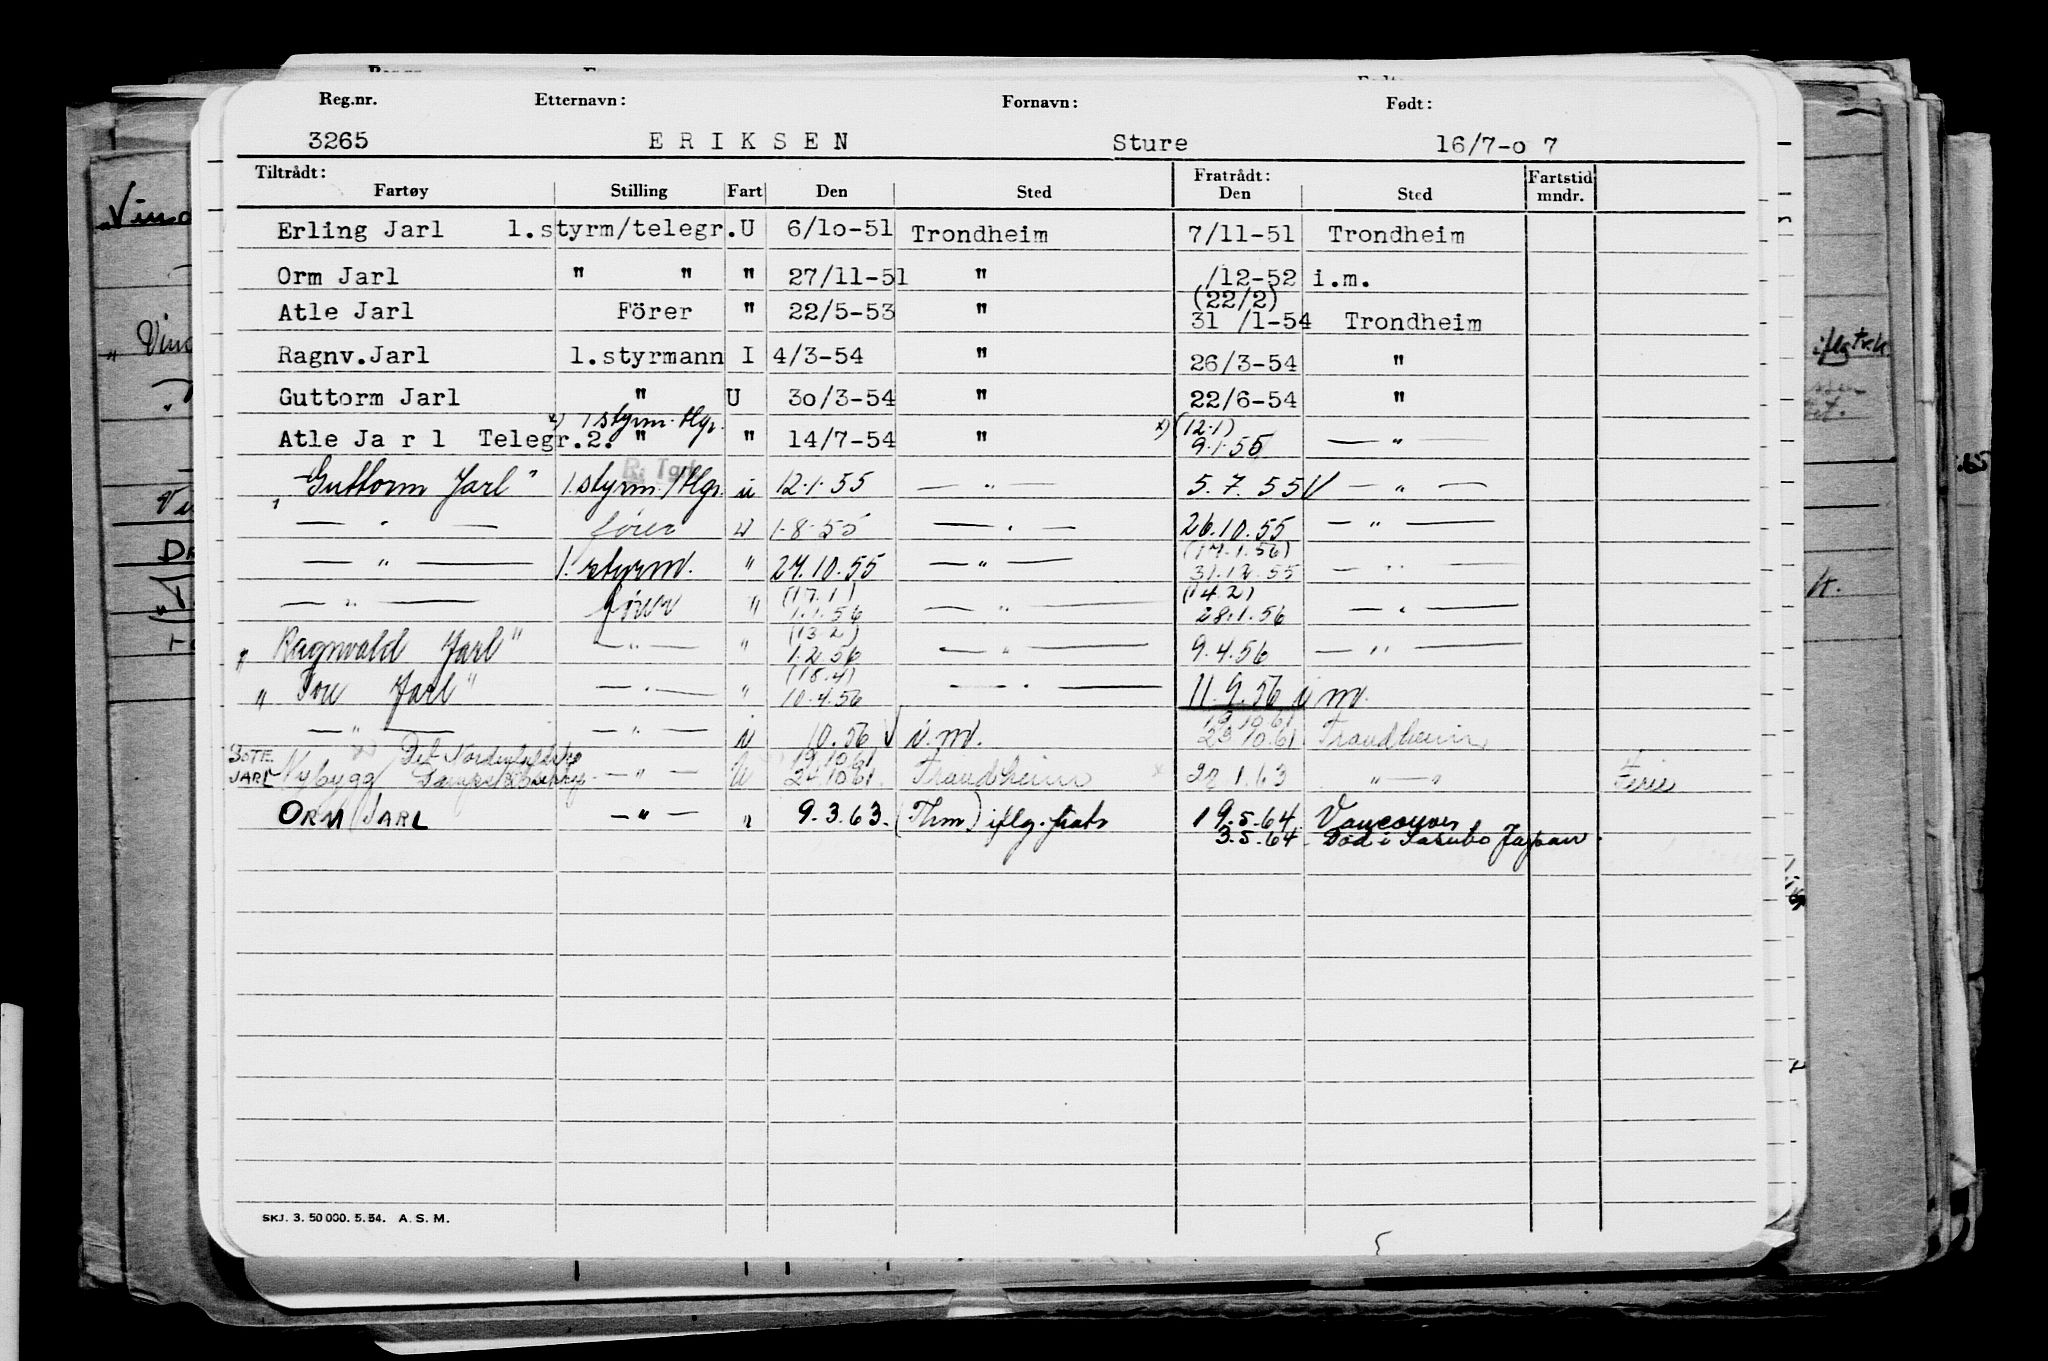 Reg.nr. Etternavn: Fornavn: Født:
3265 ERIKSEN Sture 16/7-o 7
Tiltrådt: Fratrådt: Fartstid
Fartøy Stilling Fart Den Sted Den Sted mndr.
Erling Jarl 1.styrm/telegr. U 6/10-51 Trondheim 7/11-51 Trondheim
Orm Jarl " " " 27/11-51 " /12-52 i.m.
(22/2)
Atle Jarl Förer " 22/5-53 " 31 /1-54 Trondheim
Ragnv.Jarl 1.styrmann I 4/3-54 " 26/3-54 "
Guttorm Jarl " U 3o/3-54 " 22/6-54 "
x) 1 styrm. tlgr. x) (12.1)
Atle Ja r l Telegr.2. " " 14/7-54 " 9.1.55 — " —
"Guttorm Jarl" 1.styrm./tlgr. u 12.1.55 — " — 5.7.55 — " —
— " — fører u 1.8.55 — " — 26.10.55 — " —
(17.1.56)
— " — 1. styrm. " 27.10.55 — " — 31.12.55 — " —
(17.1) (14.2)
— " — fører " 1.1.56 — " — 28.1.56 — " —
(13.2)
"Ragnvald Jarl" — " — " 1.2.56 — " — 9.4.56 — " —
(15.4)
"Tore Jarl" — " — " 10.4.56 — " — 11.9.56 i m.
19.10.61
— " — — " — i 10.56 i.m. 23.10.61 Trondheim
BOTE Det Nordenfjeldske 19.10.61
JARL Nybygg — " — U 24.10.61 Trondheim x 22.1.63 " — " Ferie
ORM JARL — " — " 9.3.63. (Thm) iflg. 19.5.64 Vancouver
3.5.64 Død i Sasebo Japan.
SKJ. 3. 50 000. 5. 54. A. S. M.